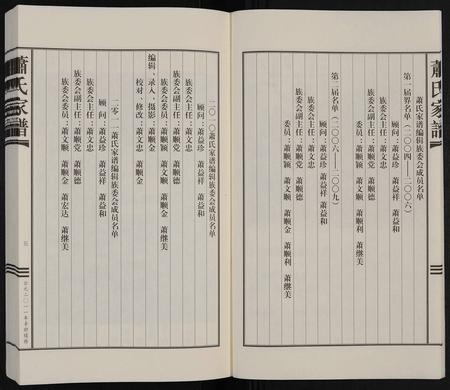 蕭氏家譜
萧氏家谱编辑族委会成员名单
第一届界名单（二〇〇四—二〇〇六）
顾问：萧益珍 萧益祥 萧益和
族委会主任：萧文忠
族委会副主任：萧顺党 萧顺德
委员：萧顺颖 萧文顺 萧顺金 萧顺利 萧继美
第二届名单（二〇〇六—二〇〇九）
顾问：萧益珍 萧益祥 萧益和
族委会主任：萧文忠
族委会副主任：萧顺党 萧顺德
委员：萧顺颖 萧文顺 萧顺金 萧顺利 萧继美
二〇一〇萧氏家谱编辑族委会成员名单
顾问：萧益珍 萧益祥 萧益和
族委会主任：萧文忠
族委会副主任：萧顺党 萧顺德
委员：萧顺颖 萧文顺 萧顺金 萧顺利 萧继美
编辑、录入、摄影：萧顺金
校对、修改：萧文忠 萧顺金
二零一一萧氏家谱编辑族委会成员名单
顾问：萧益珍 萧益祥 萧益和
族委会主任：萧文忠
族委会副主任：萧顺党 萧顺德
委员：萧文顺 萧顺金 萧宏达 萧继美
蕭氏家譜